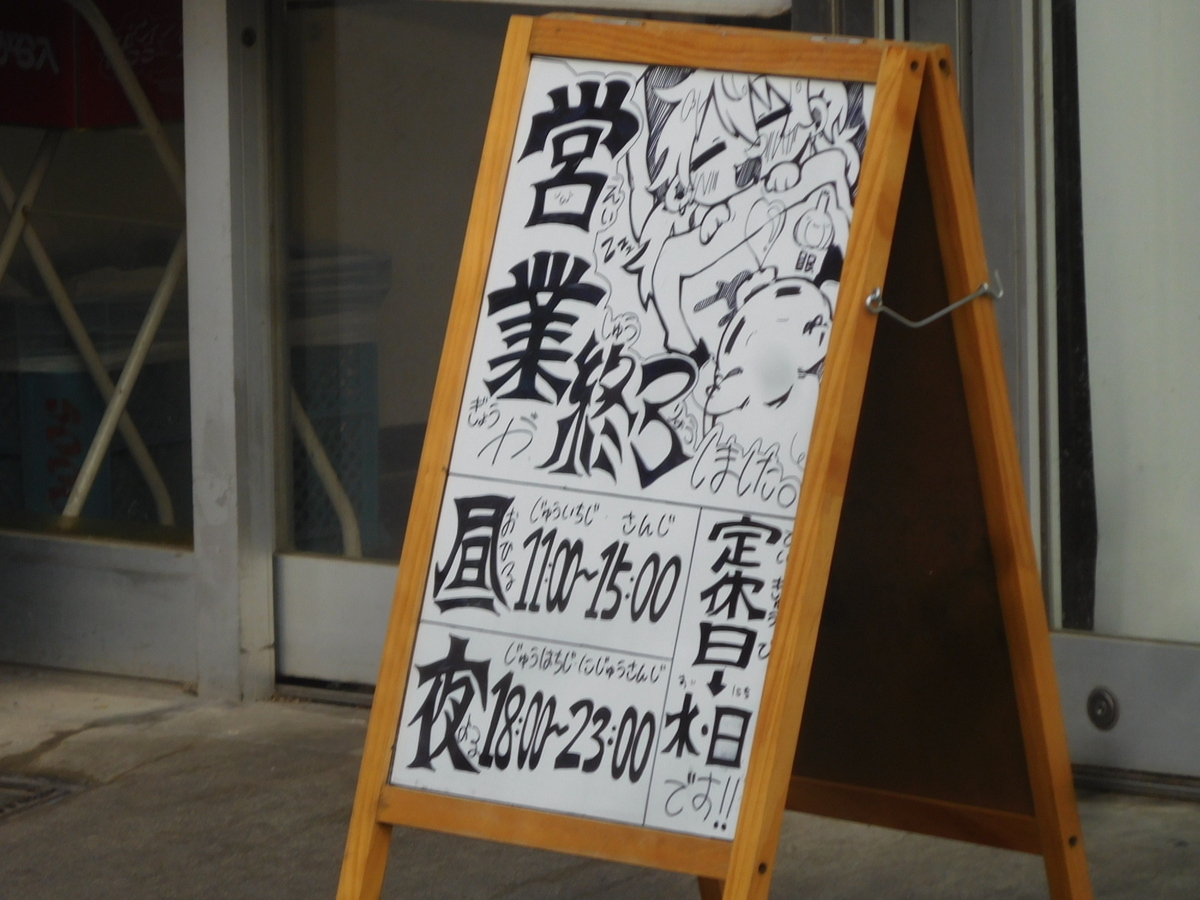 営業が終了しました。
えい
ぎょう
しゅう
りょう
zzz
眠
昼 11:00~15:00
おひる
じゅういちじ さんじ
夜 18:00~23:00
よる
じゅうはちじ にじゅうさんじ
定休日
↓
水・日
です!!